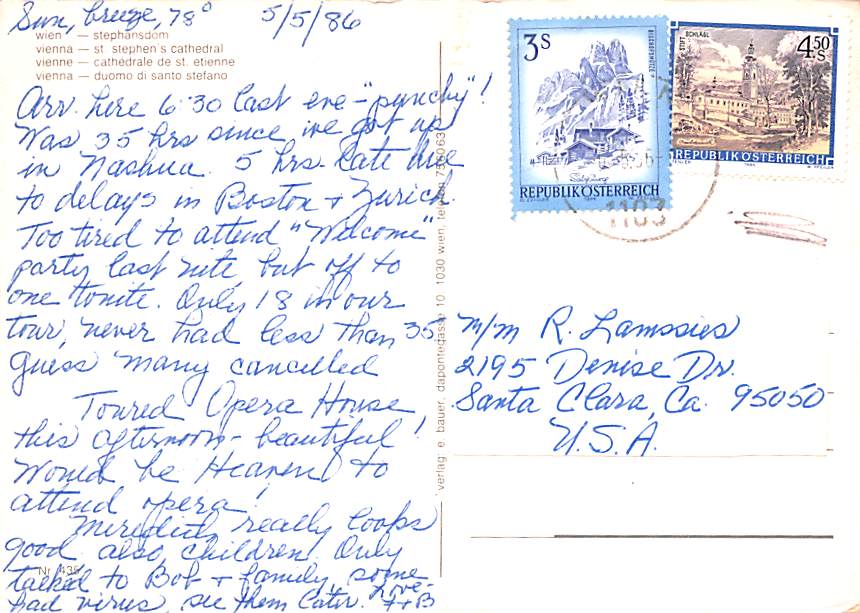 Sun, breeze, 78° 5/5/86
wien — stephansdom
vienna — st stephen's cathedral
vienne — cathédrale de st. etienne
vienna — duomo di santo stefano
Arr. here 6:30 last eve - "punchy"!
Was 35 hrs since we got up
in Nashua. 5 hrs. late due
to delays in Boston + Zurich.
Too tired to attend "Welcome"
party last nite, but off to
one tonite. Only 18 in our
tour, never had less than 35
Guess many cancelled
Toured Opera House
this afternoon - beautiful!
Would be Heaven to
attend opera!
Meredith really looks
good also, children. Only
talked to Bob + family, some
had virus, see them later.
Love-
F+B
Nr. 435
verlag e bauer, dapontegasse 10 1030 wien, telefon
3S
BISCHOFSMÜTZE
Salzburg
REPUBLIK ÖSTERREICH
STIFT SCHLÄGL
4.50 S
REPUBLIK ÖSTERREICH
1103
M/M R. Lamssies
2195 Denise Dr.
Santa Clara, Ca. 95050
U.S.A.